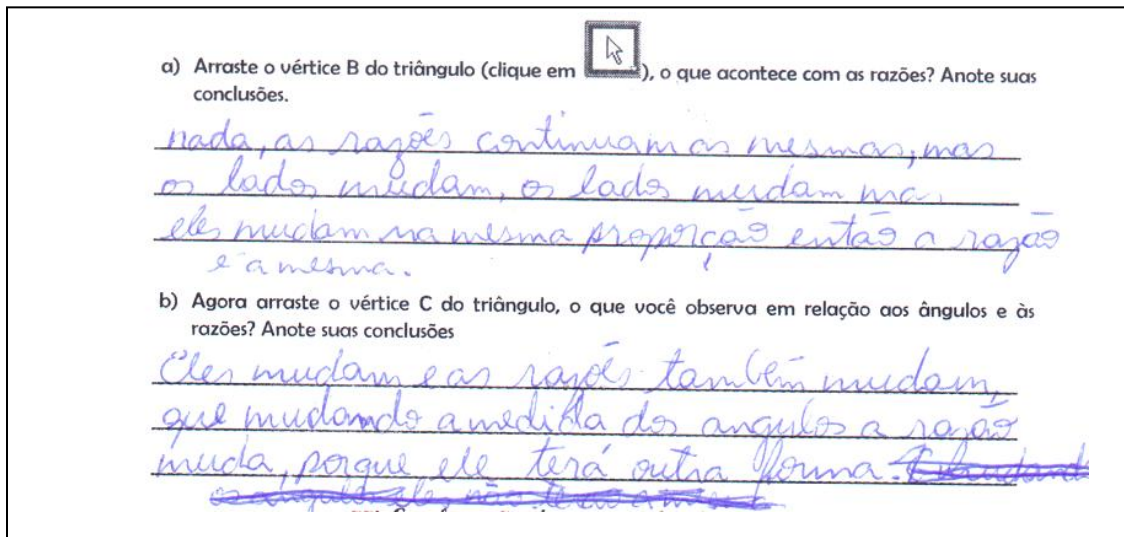 a) Arraste o vértice B do triângulo (clique em ), o que acontece com as razões? Anote suas
conclusões.
nada, as razões continuam as mesmas, mas
os lados mudam, os lados mudam mas
eles mudam na mesma proporção então a razão
e a mesma.
b) Agora arraste o vértice C do triângulo, o que você observa em relação aos ângulos e às
razões? Anote suas conclusões
Eles mudam e as razões também mudam,
que mudando a medida dos angulos a razão
muda, porque ele terá outra forma.